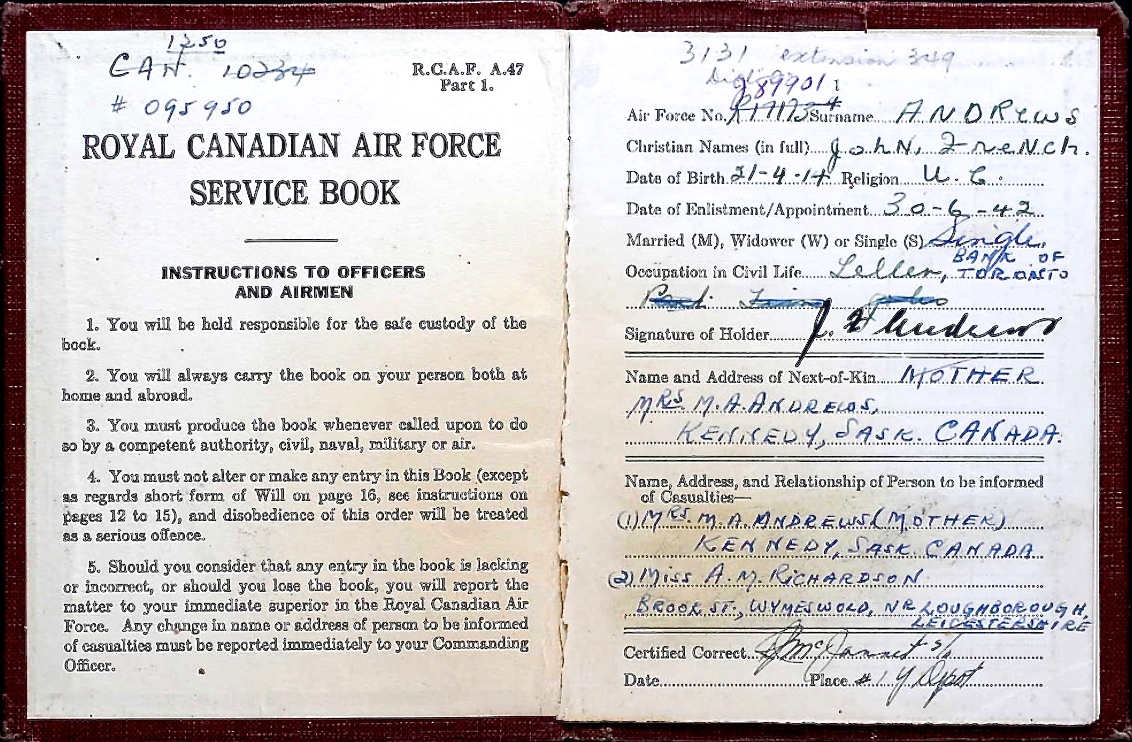 1250
CAN. 10234
# 095950
R.C.A.F. A.47
Part 1.
ROYAL CANADIAN AIR FORCE
SERVICE BOOK
INSTRUCTIONS TO OFFICERS
AND AIRMEN
1. You will be held responsible for the safe custody of the
book.
2. You will always carry the book on your person both at
home and abroad.
3. You must produce the book whenever called upon to do
so by a competent authority, civil, naval, military or air.
4. You must not alter or make any entry in this Book (except
as regards short form of Will on page 16, see instructions on
pages 12 to 15), and disobedience of this order will be treated
as a serious offence.
5. Should you consider that any entry in the book is lacking
or incorrect, or should you lose the book, you will report the
matter to your immediate superior in the Royal Canadian Air
Force. Any change in name or address of person to be informed
of casualties must be reported immediately to your Commanding
Officer.
3131 extension 349
J89901
Air Force No. Surname ANDREWS
Christian Names (in full) John, French.
Date of Birth 21-4-14 Religion U.C.
Date of Enlistment/Appointment 30-6-42
Married (M), Widower (W) or Single (S) Single.
Occupation in Civil Life Teller, BANK OF
TORONTO
Signature of Holder J. F. Andrews
Name and Address of Next-of-Kin MOTHER
MRS. M.A. ANDREWS,
KENNEDY, SASK. CANADA.
Name, Address, and Relationship of Person to be informed
of Casualties—
(1) MRS. M.A. ANDREWS (MOTHER)
KENNEDY, SASK. CANADA
(2) MISS A.M. RICHARDSON
BROOK ST., WYMESWOLD, NR. LOUGHBOROUGH,
LEICESTERSHIRE
Certified Correct
Date Place # 1 Y Depot